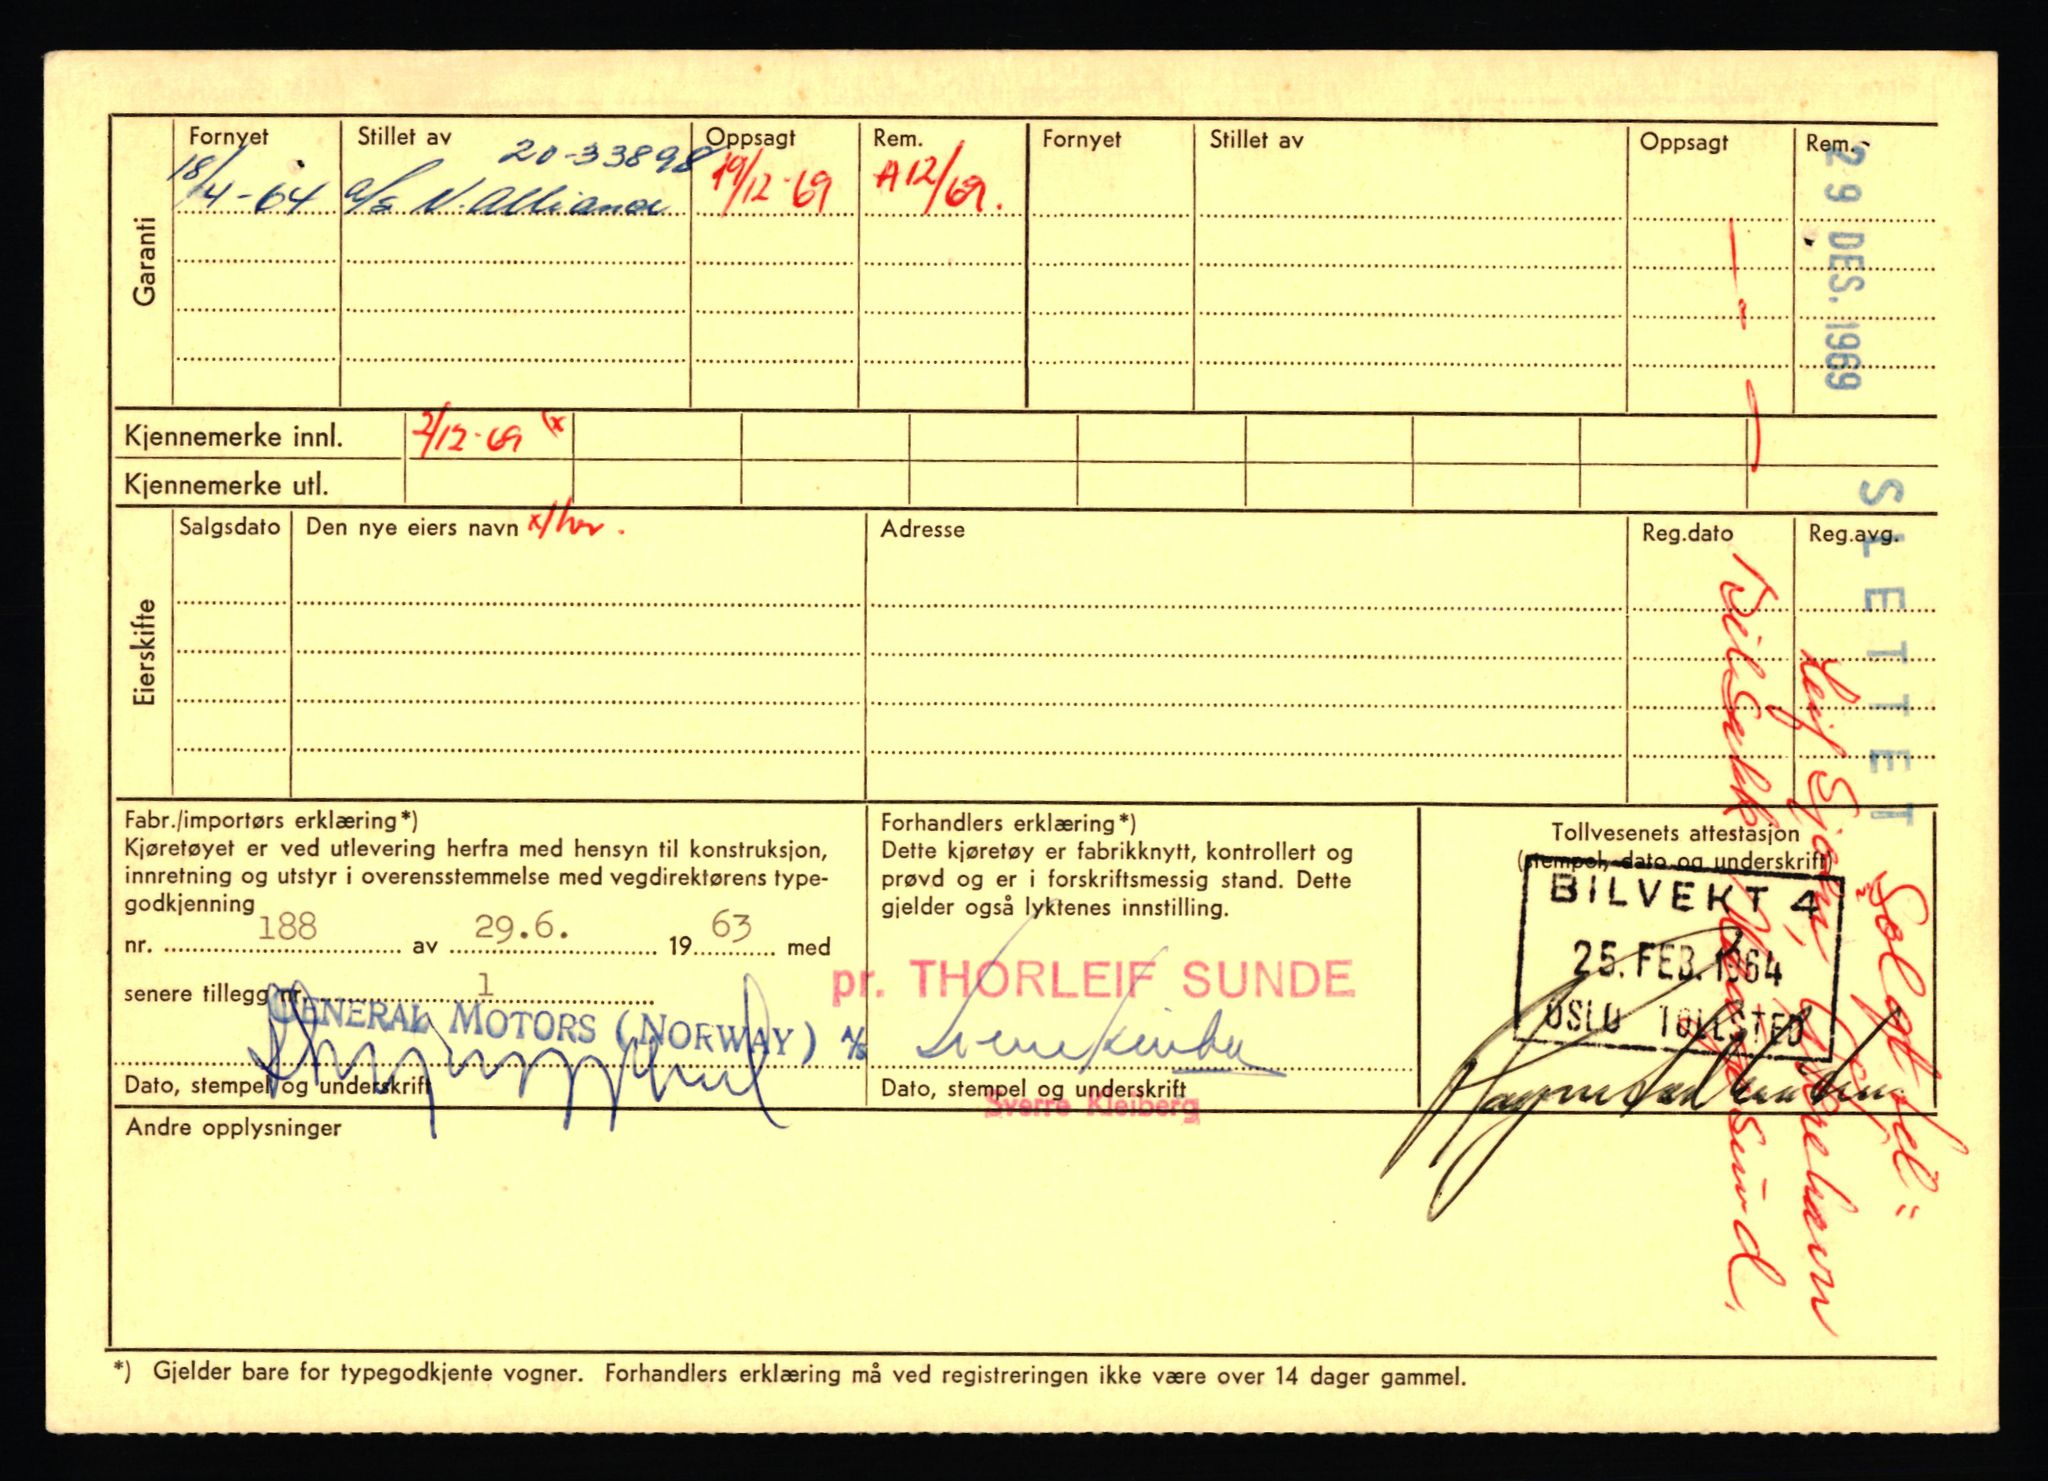 Garanti
Fornyet Stillet av Oppsagt Rem. Fornyet Stillet av Oppsagt Rem.
20-33898
18/4-64 a/s N. Alliance 19/12-69 A12/69.
29 DES. 1969
Kjennemerke innl. 2/12-69 (x
Kjennemerke utl.
SLETTET
Eierskifte
Salgsdato Den nye eiers navn x/her. Adresse Reg.dato Reg.avg.
Solgt til:
Leif Sjøen, Åkrehavn
Bilsakk
Fabr./importørs erklæring*)
Kjøretøyet er ved utlevering herfra med hensyn til konstruksjon,
innretning og utstyr i overensstemmelse med vegdirektørens type-
godkjenning
nr. 188 av 29.6. 1963 med
senere tillegg nr. 1
GENERAL MOTORS (NORWAY) A/S
Dato, stempel og underskrift
Forhandlers erklæring*)
Dette kjøretøy er fabrikknytt, kontrollert og
prøvd og er i forskriftsmessig stand. Dette
gjelder også lyktenes innstilling.
pr. THORLEIF SUNDE
Dato, stempel og underskrift
Sverre Kleiberg
Tollvesenets attestasjon
(stempel, dato og underskrift)
BILVEKT 4
25. FEB. 1964
OSLO TOLLSTED
Andre opplysninger
*) Gjelder bare for typegodkjente vogner. Forhandlers erklæring må ved registreringen ikke være over 14 dager gammel.